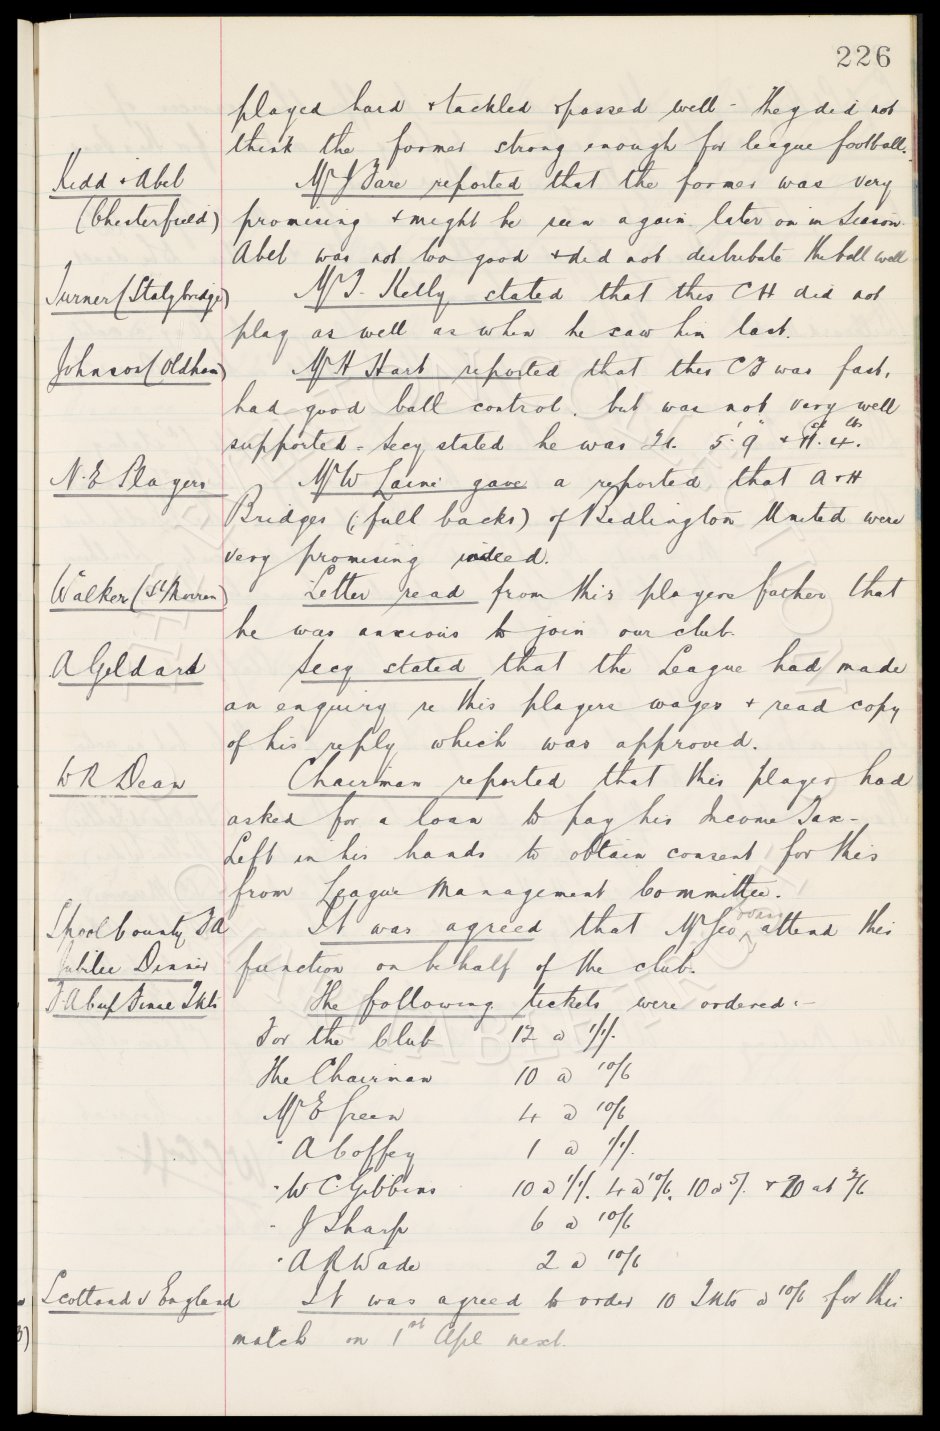 226
played hard & tackled & passed well - They did not
think the former strong enough for league football.
Kidd & Abel Mr J Fare reported that the former was very
(Chesterfield) promising & might be seen again later on in Season.
Abel was not too good & did not distribute the ball well
Turner (Stalybridge) Mr T. Kelly stated that this CH did not
play as well as when he saw him last.
Johnson (Oldham) Mr H Hart reported that this CF was fast,
had good ball control, but was not very well
supported - Secy stated he was 21. 5' 9" & 11st. 4lb.
N.E Players Mr W Laine gave a reported that A & H
Bridges (full backs) of Bedlington United were
very promising indeed.
Walker (St Mirren) Letter read from this players father that
he was anxious to join our club.
A Geldard Secy stated that the League had made
an enquiry re this players wages & read copy
of his reply which was approved.
W R Dean Chairman reported that this player had
asked for a loan to pay his Income Tax -
Left in his hands to obtain consent for this
from League Management Committee.
Lpool County FA It was agreed that Mr Geo Evans attend this
Jubilee Dinner function on behalf of the club.
F.A Cup Final Tkts The following tickets were ordered :-
For the Club 12 @ 1/1/-
The Chairman 10 @ 10/6
Mr E Green 4 @ 10/6
" A Coffey 1 @ 1/1/-
" W C. Gibbins 10 @ 1/1/- 4 @ 10/6, 10 @ 5/- & 20 at 3/6
" J Sharp 6 @ 10/6
" A R Wade 2 @ 10/6
Scotland v England It was agreed to order 10 Tkts @ 10/6 for this
match on 1st Apl next.